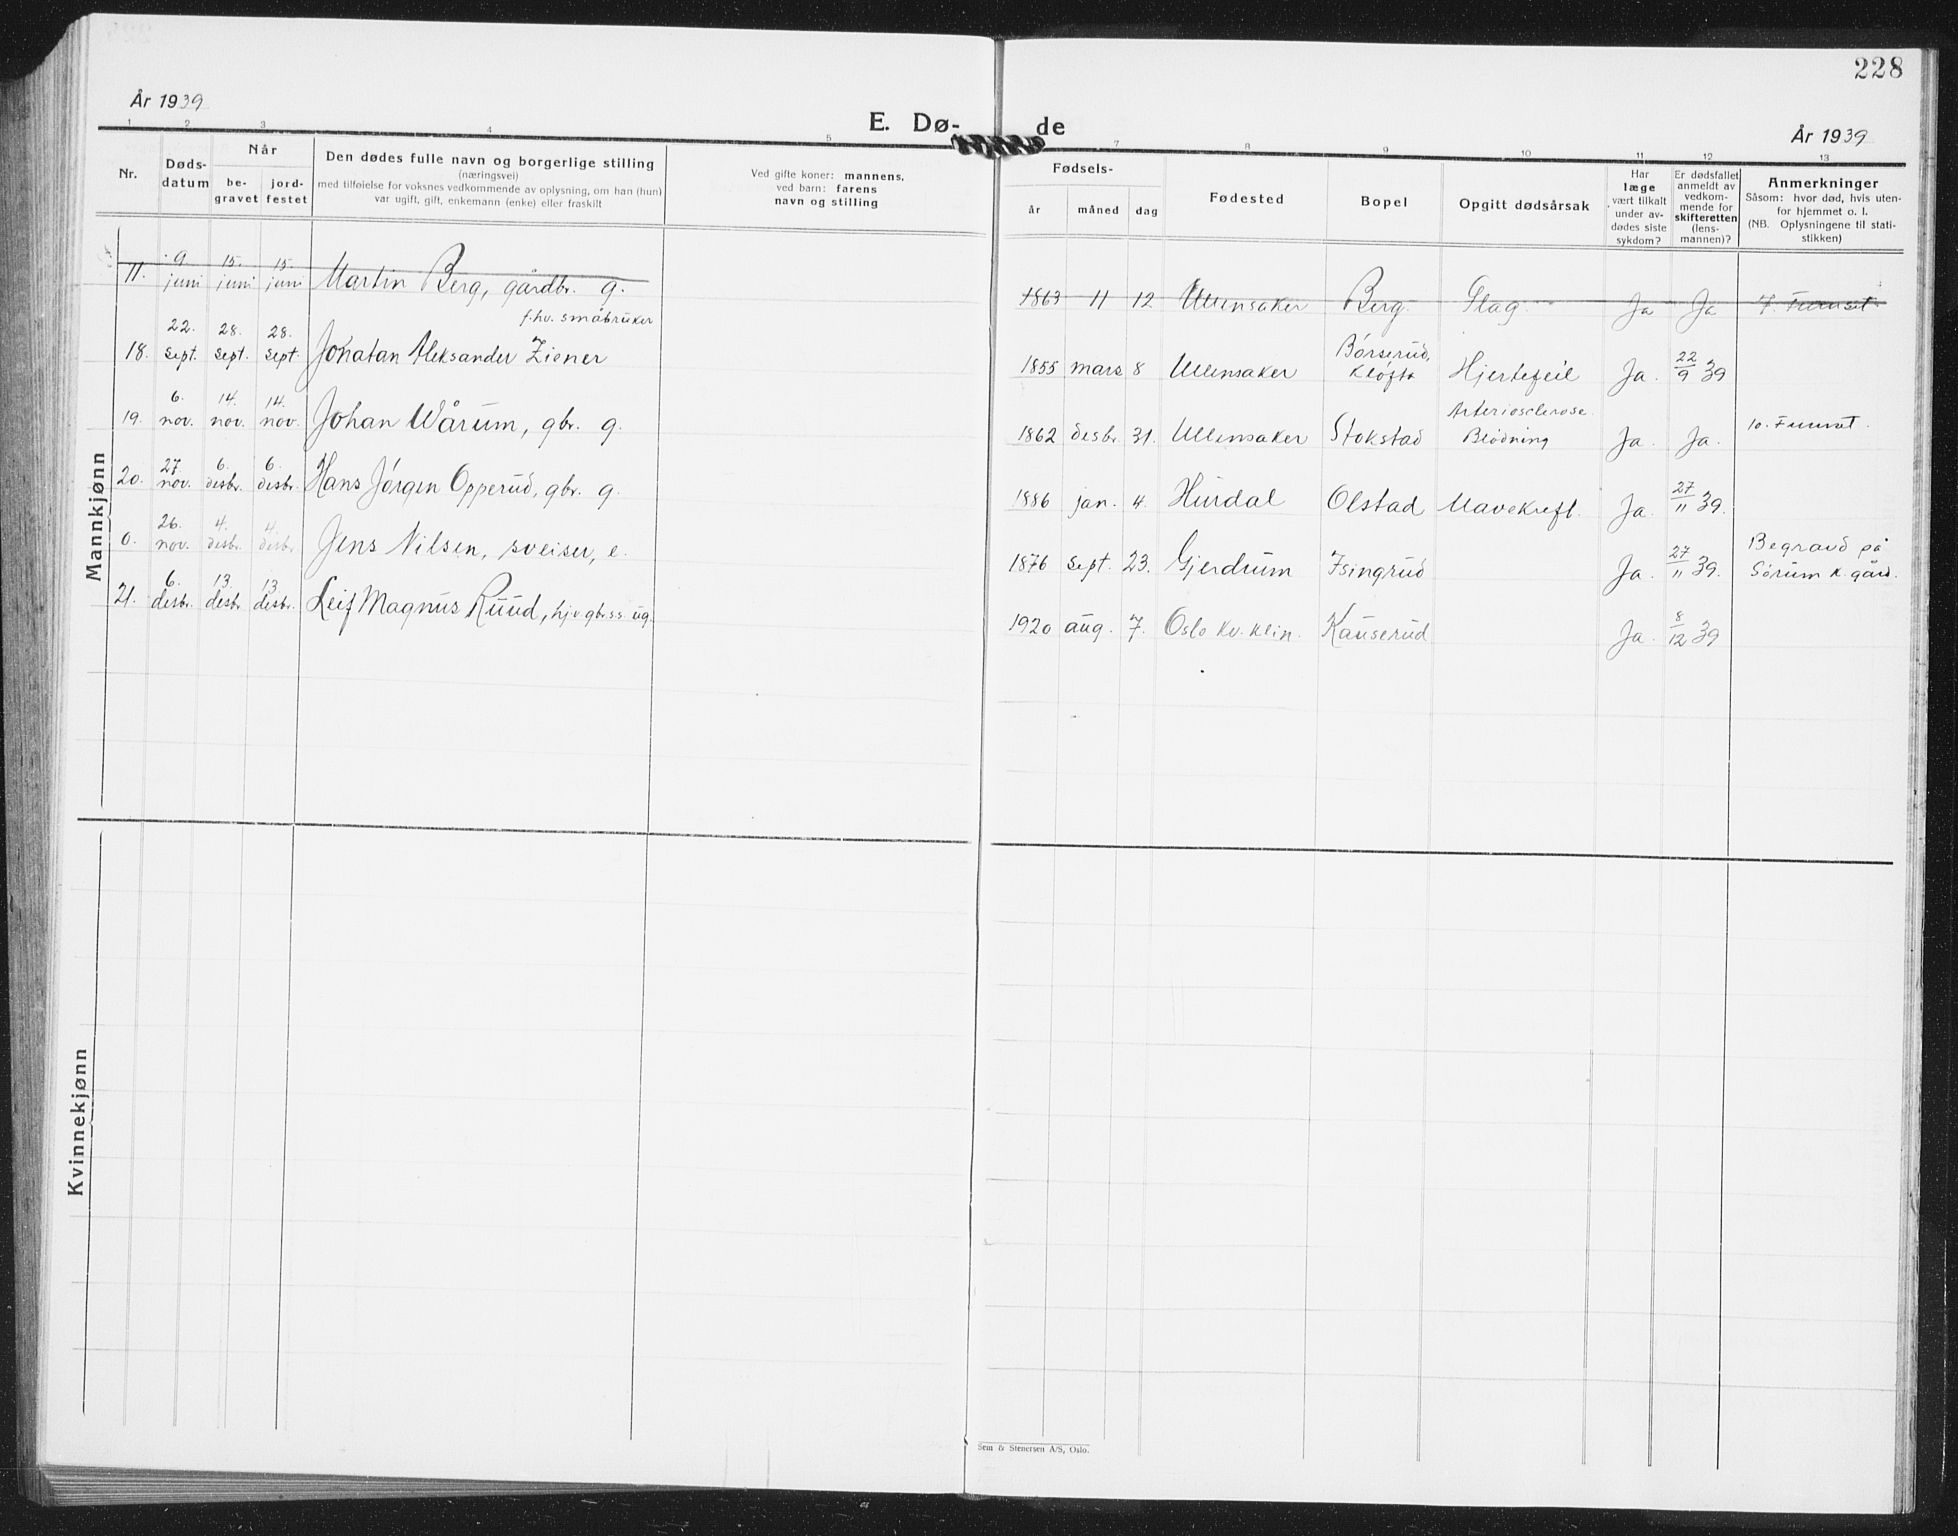 228
År 1939
E. Dø-
de
År 1939
1 2 3 4 5 7 8 9 10 11 12 13
Nr.
Døds-
datum
Når
be-
gravet
jord-
festet
Den dødes fulle navn og borgerlige stilling
(næringsvei)
med tilføielse for voksnes vedkommende av oplysning, om han (hun)
var ugift, gift, enkemann (enke) eller fraskilt
Ved gifte koner: mannens,
ved barn: farens
navn og stilling
Fødsels-
år måned dag
Fødested
Bopel
Opgitt dødsårsak
Har
læge
vært tilkalt
under av-
dødes siste
sykdom?
Er dødsfallet
anmeldt av
vedkom-
mende for
skifteretten
(lens-
mannen)?
Anmerkninger
Såsom: hvor død, hvis uten-
for hjemmet o. l.
(NB. Oplysningene til stati-
stikken)
Mannkjønn
11. 9 juni 15. juni 15. juni Martin Berg, gårdbr. g. 1863 11 12 Ullensaker Berg Slag Ja Ja 7. Furuset
f.hv. småbruker
18. 22. sept. 28. sept. 28. sept. Jonatan Aleksander Ziener 1855 mars 8 Ullensaker Børserud, Kløfta Hjertefeil Ja. 22/9 39
19. 6. nov. 14. nov. 14. nov. Johan Wårum, gbr. g. 1862 desbr. 31. Ullensaker Stokstad Arteriosclerose. Blødning Ja. Ja. 10. Furuset.
20. 27. nov. 6. desbr. 6. desbr. Hans Jørgen Opperud, gbr. g. 1886 jan. 4. Hurdal Olstad Mavekreft. Ja. 27/11 39.
0. 26. nov. 4. desbr. 4. desbr. Jens Nilsen, sveiser, e. 1876 sept. 23. Gjerdrum Isingrud Ja. 27/11 39. Begravd på Sørum k.gård.
21. 6. desbr. 13. desbr. 13. desbr. Leif Magnus Ruud, hjv. gbr.s.s. ug. 1920 aug. 7. Oslo kv. klin. Kauserud Ja. 8/12 39
Kvinnekjønn
Sem & Stenersen A/S, Oslo.